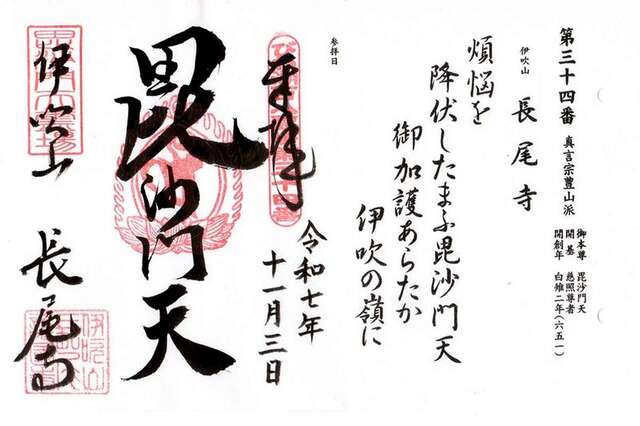 第三十四番 真言宗豊山派
御本尊 毘沙門天
開基 慈照尊者
開創年 白雉二年(六五一)
伊吹山 長尾寺
煩悩を
降伏したまふ毘沙門天
御加護あらたか
伊吹の嶺に
参拝日
奉拝
令和七年
十一月三日
毘沙門天
伊吹山 長尾寺